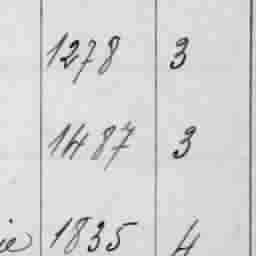 1278 3
1487 3
1835 4